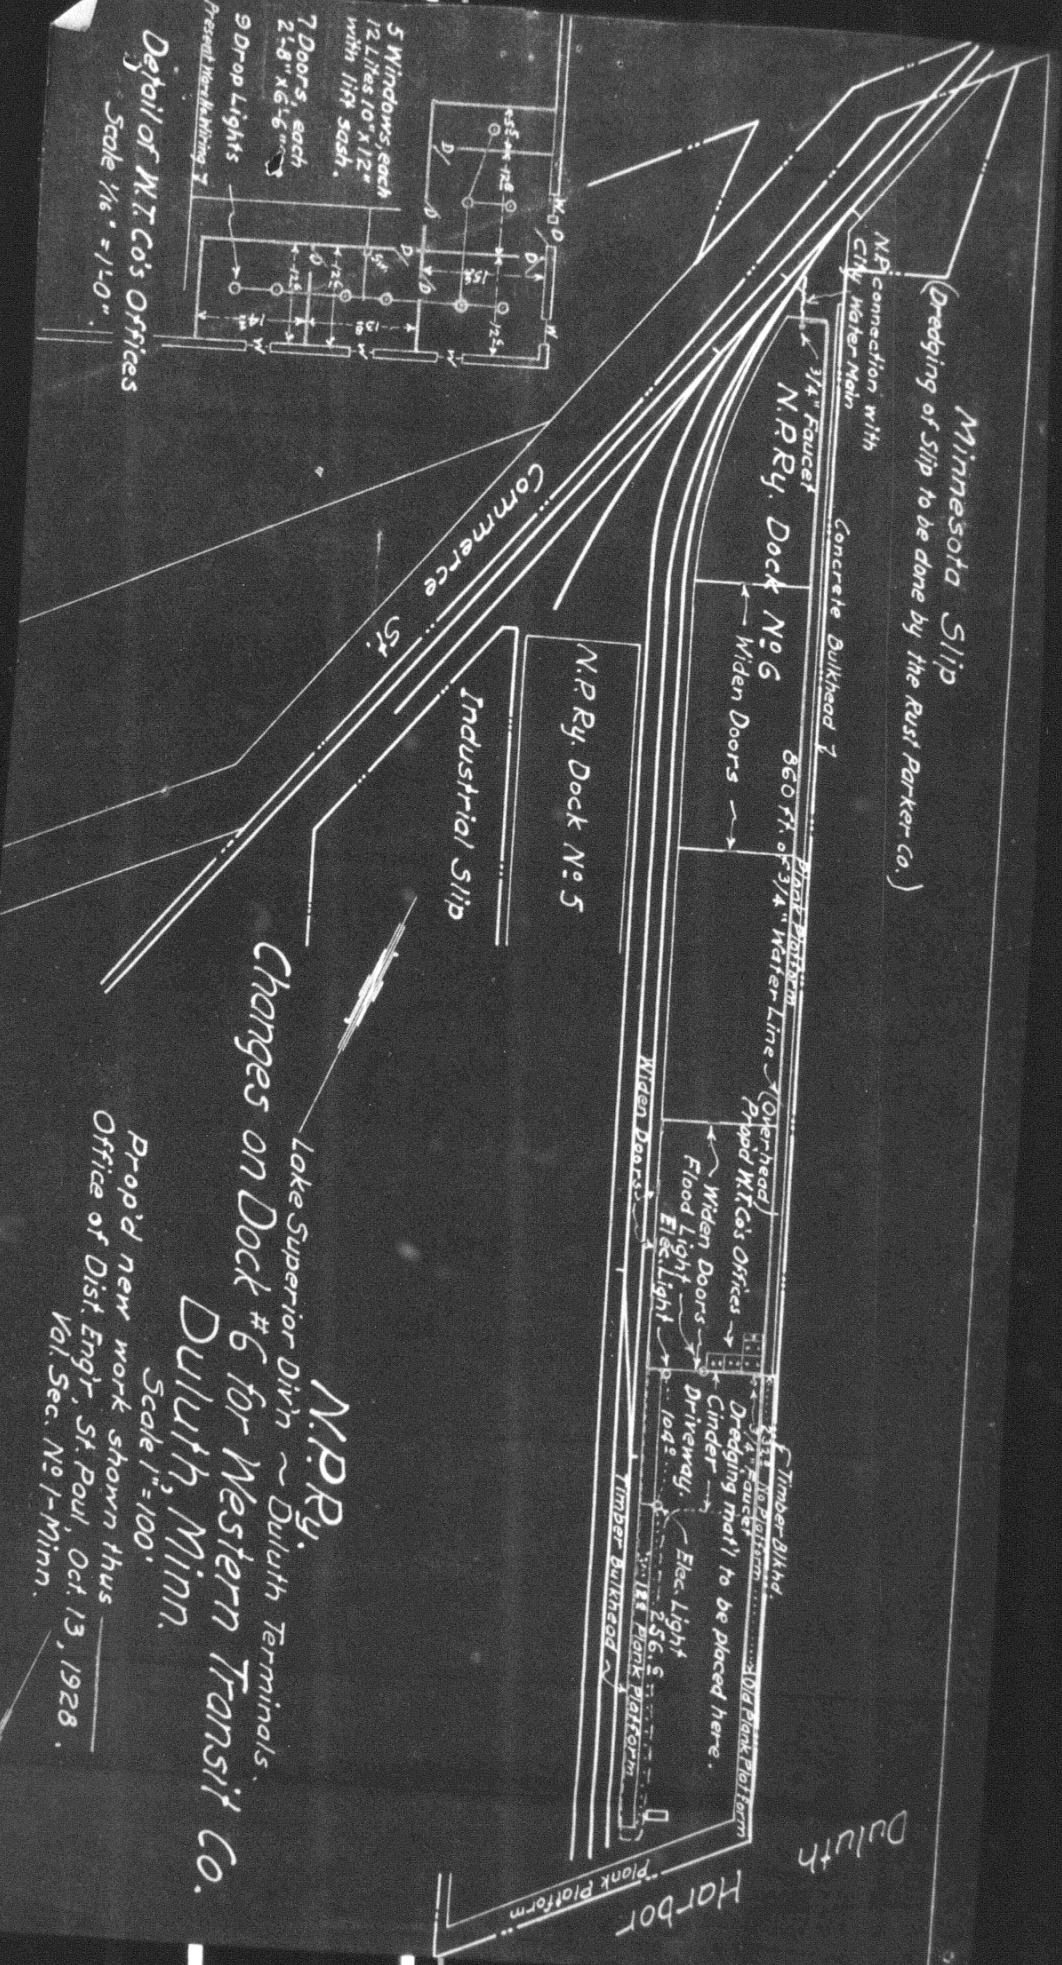 Minnesota Slip
(Dredging of Slip to be done by the Rust Parker Co.)
N.P. connection with
City Water Main
3/4" Faucet
Concrete Bulkhead
N.P.Ry. Dock Nº 6
Widen Doors
860 ft. of 3/4" Water Line (Overhead)
Plank Platform
Prop'd W.T.Co's Offices
Widen Doors
Flood Light
Elec. Light
Widen Doors
Timber Blkhd.
No Platform
Old Plank Platform
3/4" Faucet
Dredging mat'l to be placed here.
Cinder
Driveway.
104º
Elec. Light
256.6
12º Plank Platform
Timber Bulkhead
Plank Platform
Duluth
Harbor
N.P.Ry. Dock Nº 5
Industrial Slip
Commerce St.
5 Windows, each
12 Lites 10" x 12"
with lift sash.
7 Doors, each
2'-8" x 6'-6"
9 Drop Lights
Detail of W.T.Co's Offices
Scale 1/16" = 1'-0".
D
D
D
D
D
D
W
W
W
W
W
N.P.Ry.
Lake Superior Div'n ~ Duluth Terminals.
Changes on Dock #6 for Western Transit Co.
Duluth, Minn.
Scale 1"=100'
Prop'd new work shown thus
Office of Dist. Eng'r, St. Paul, Oct. 13, 1928.
Val. Sec. Nº 1-Minn.